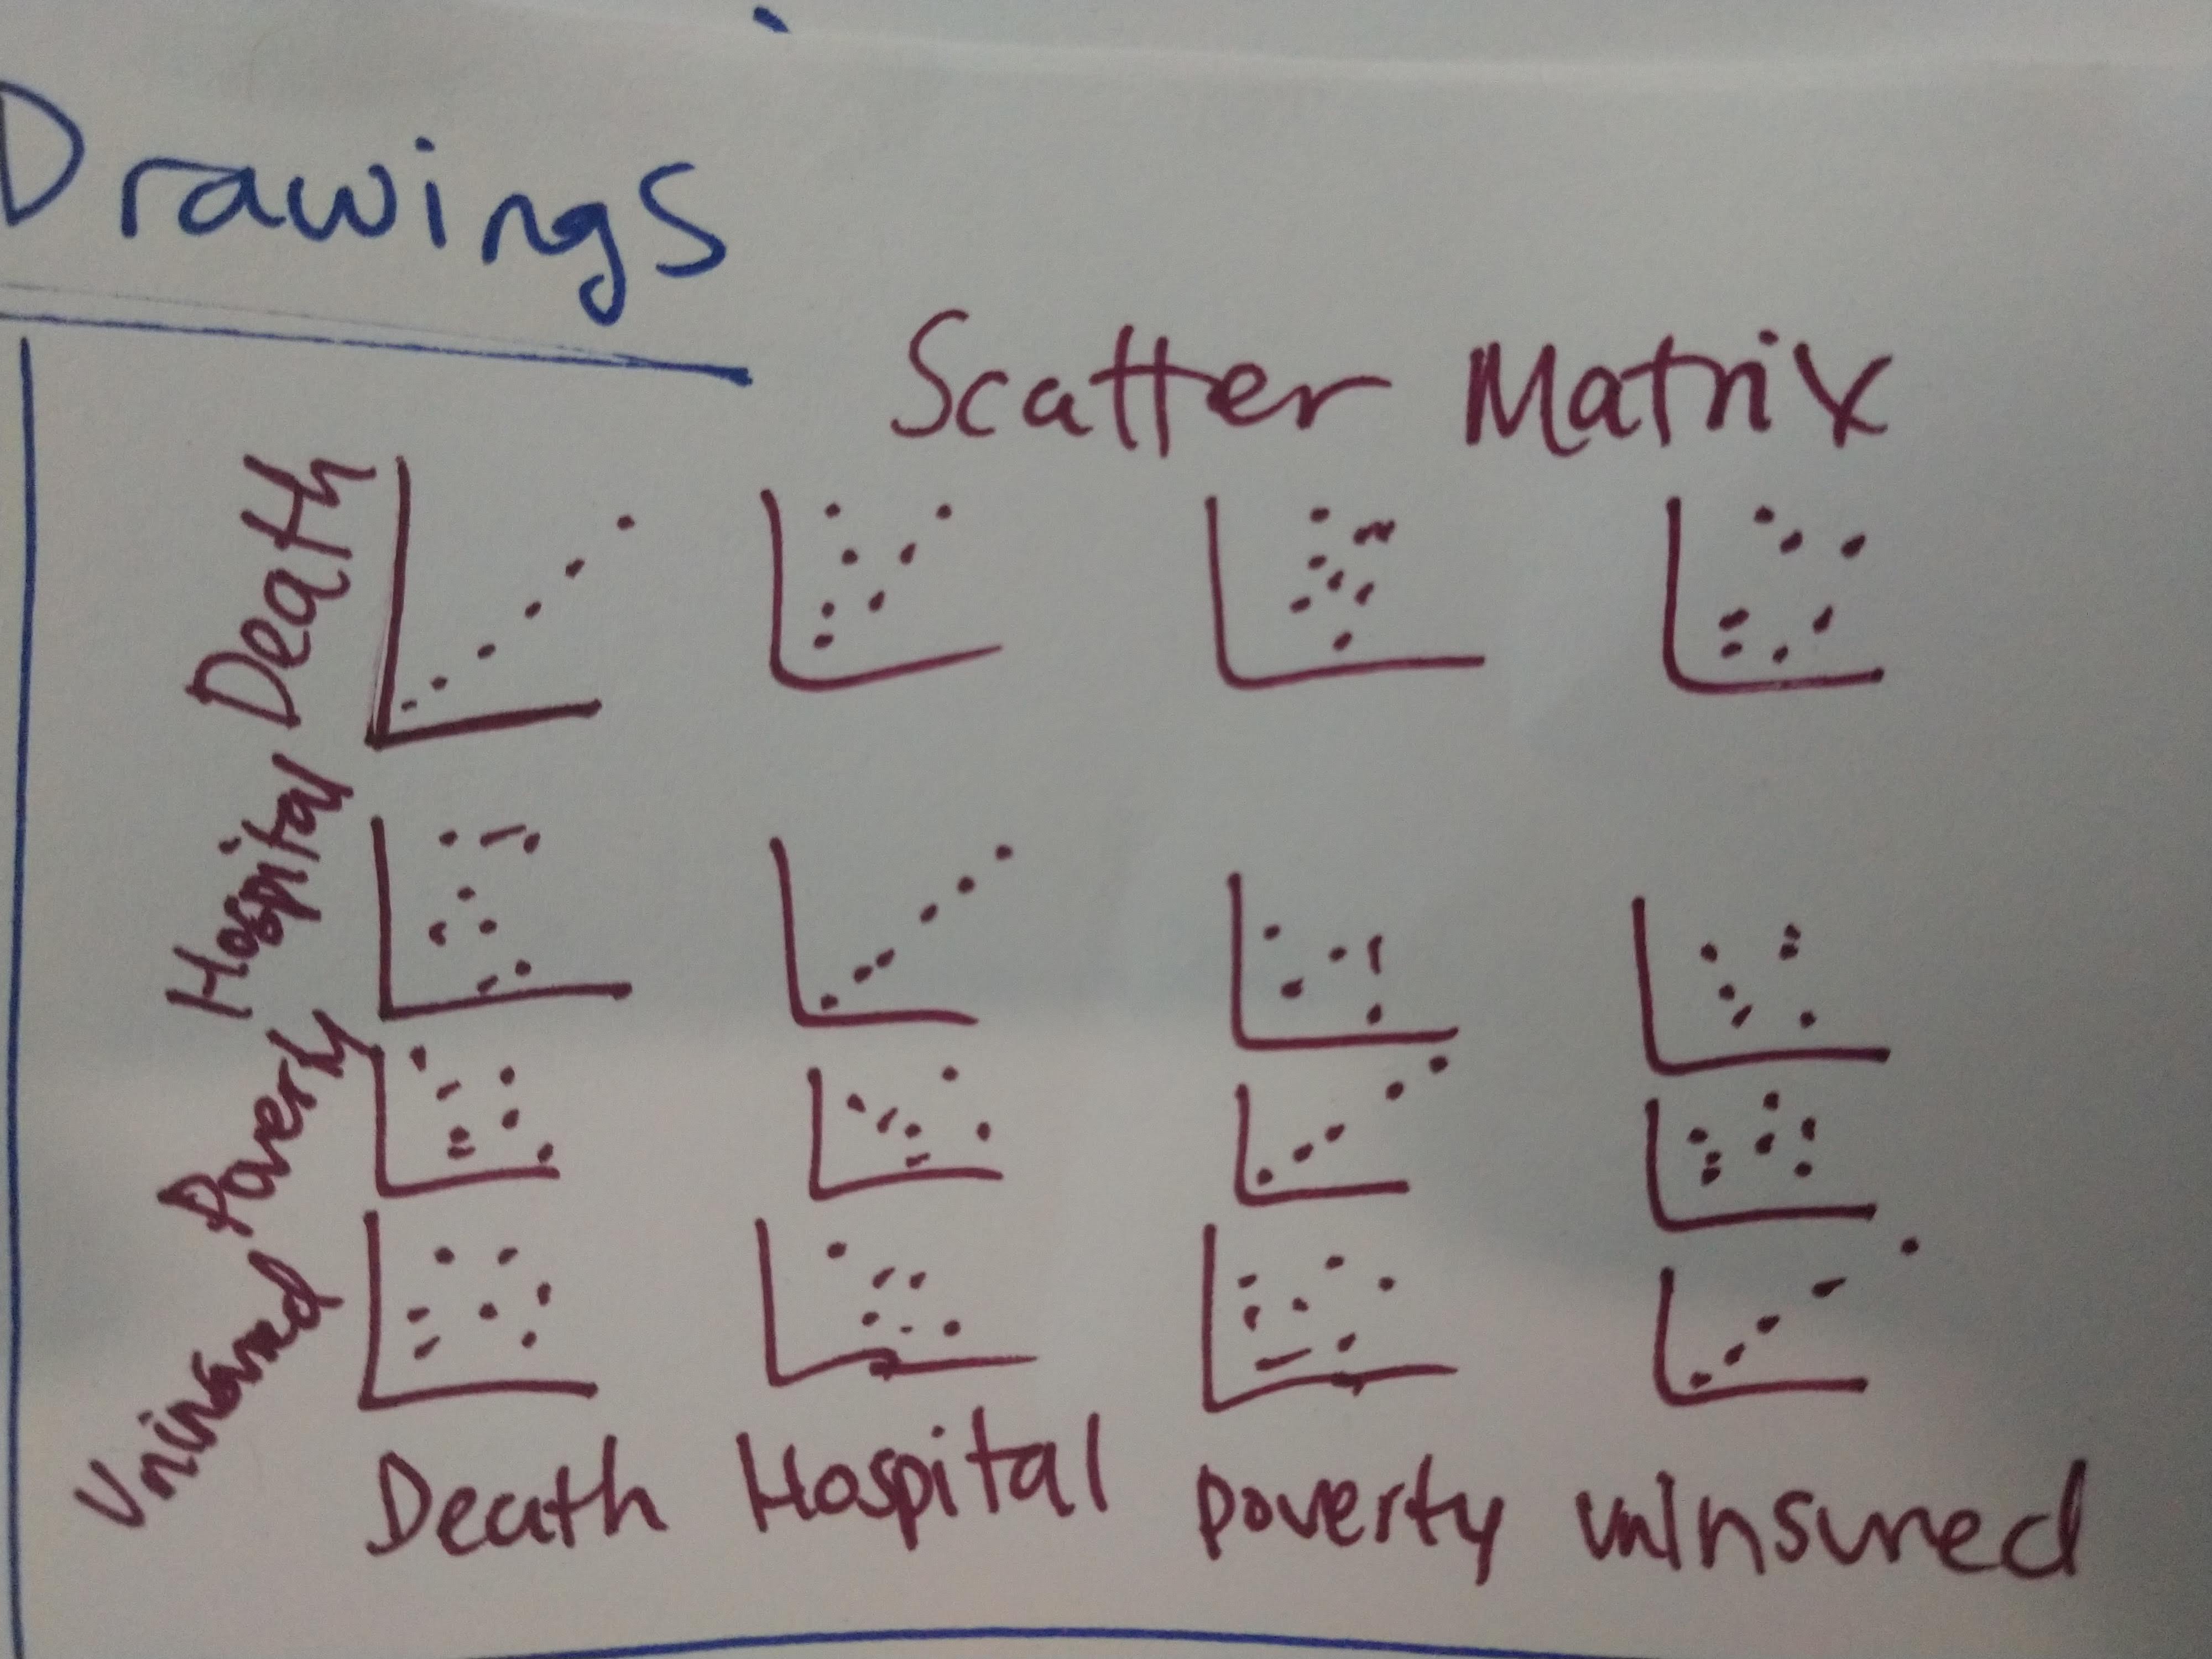 Drawings
Scatter Matrix
Death
Hospital
Poverty
Uninsured
Death Hospital Poverty uninsured